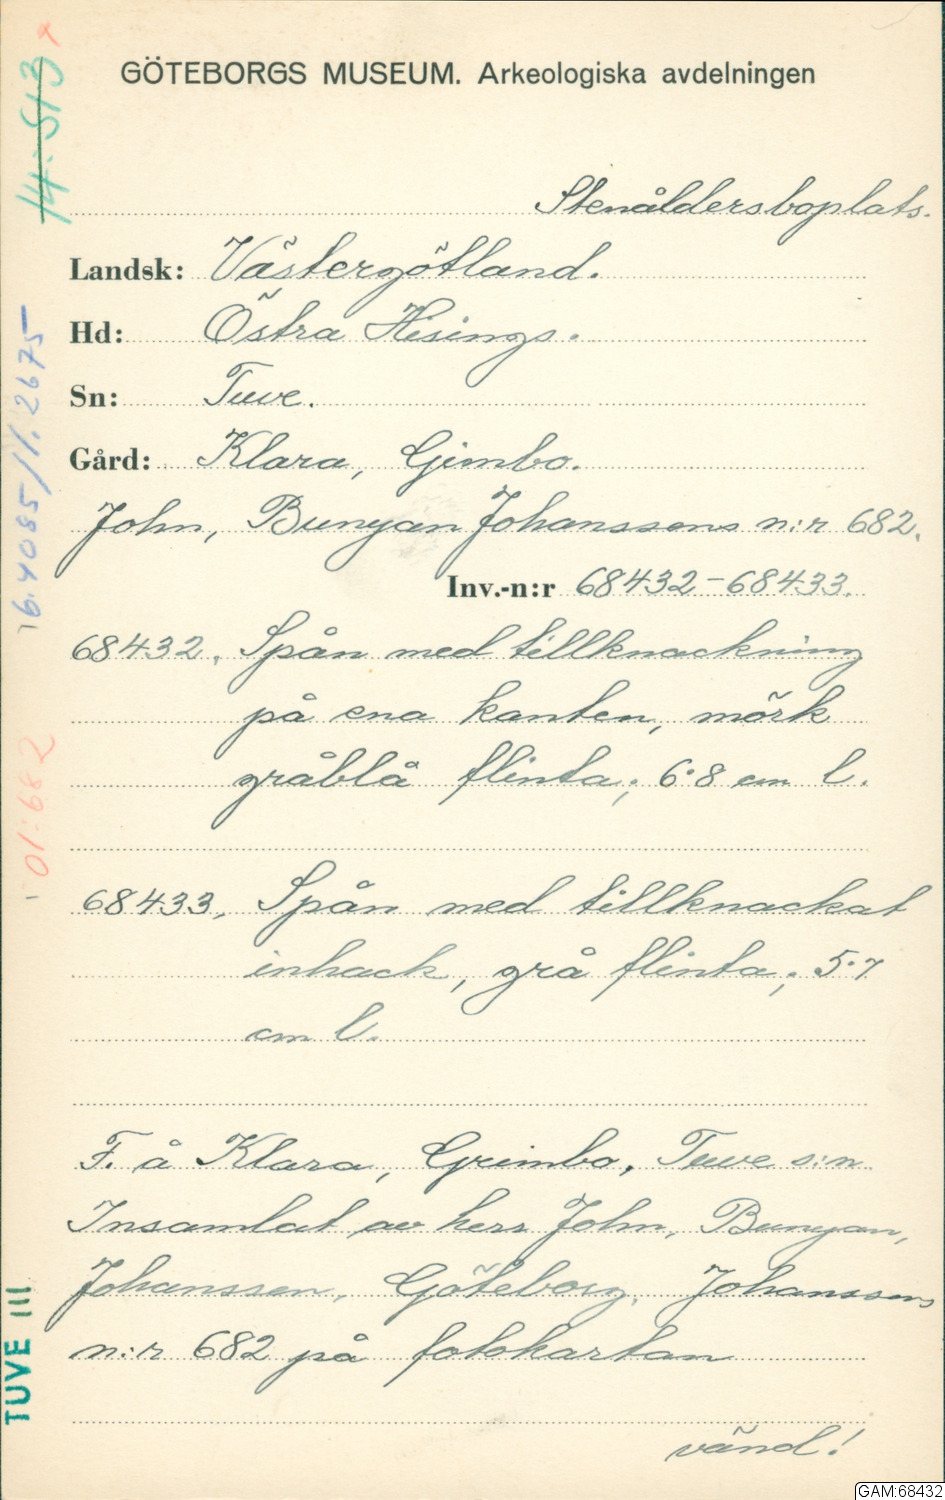 GÖTEBORGS MUSEUM. Arkeologiska avdelningen
Stenåldersboplats.
Landsk: Västergötland.
Hd: Östra Hisings.
Sn: Tuve.
Gård: Klara, Gimbo.
John, Bunyan Johanssons n:r 682.
Inv.-n:r 68432-68433.
68432. Spån med tillknackning
på ena kanten, mörk
gråblå flinta; 6.8 cm l.
68433. Spån med tillknackat
inhack, grå flinta; 5.7
cm l.
F. å Klara, Grimbo, Tuve s:n
Insamlat av herr John, Bunyan,
Johansson, Göteborg, Johanssons
n:r 682 på fotokartan
vänd!
14:513
01:682
TUVE III
GAM:68432